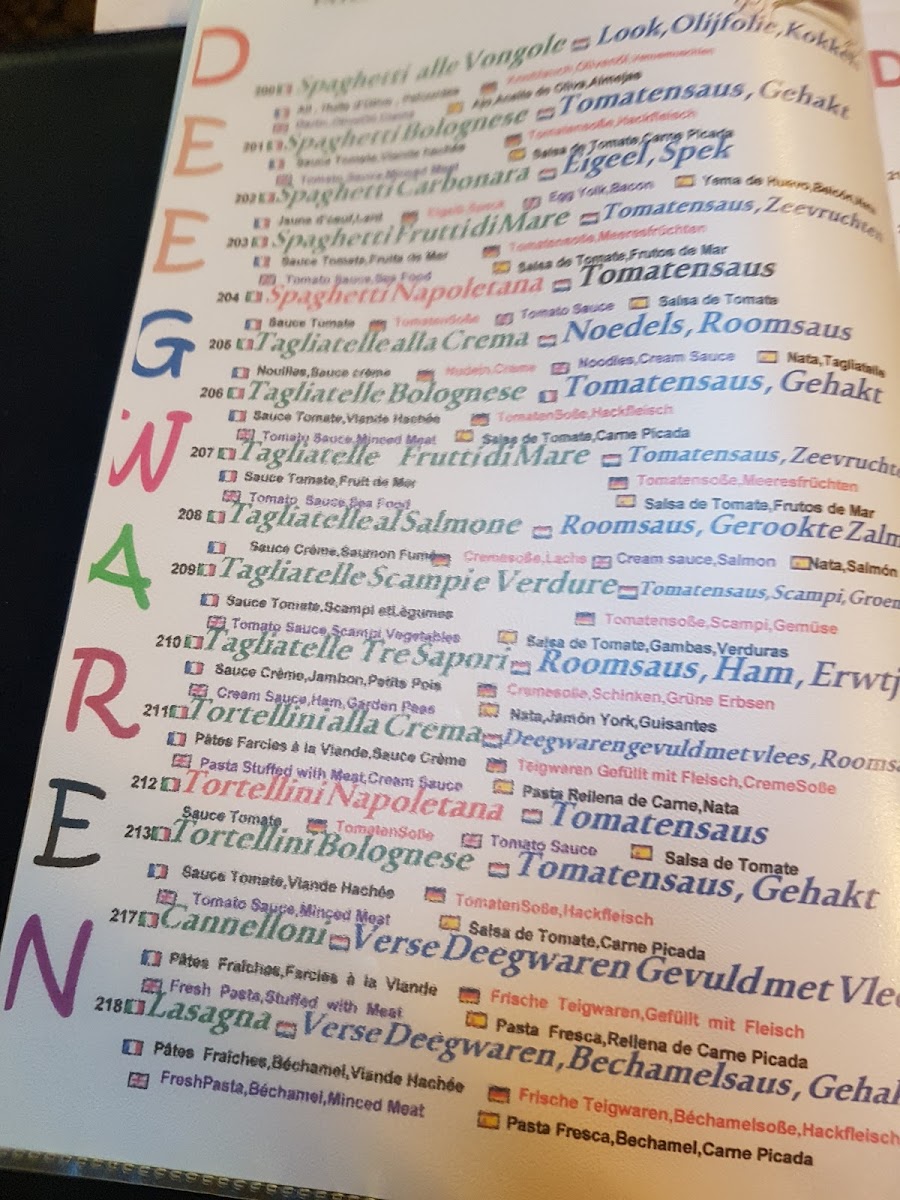 DEEGWAREN
200 Spaghetti alle Vongole Look,Olijfolie,Kokkels
Ail, Huile d'Olive,
Ajo,Aceite de Oliva,Almejas
201 Spaghetti Bolognese Tomatensaus, Gehakt
Sauce Tomate,Viande hachée Tomatensoße,Hackfleisch
Tomato Sauce,Minced Meat Salsa de Tomate,Carne Picada
202 Spaghetti Carbonara Eigeel, Spek
Jaune d'oeuf,Lard Eigelb,Speck Egg Yolk,Bacon Yema de Huevo,
203 Spaghetti Frutti di Mare Tomatensaus, Zeevruchten
Sauce Tomate,Fruits de Mer Tomatensoße,Meeresfrüchten
Tomato Sauce,Sea Food Salsa de Tomate,Frutos de Mar
204 Spaghetti Napoletana Tomatensaus
Sauce Tumate TomatenSoße Tomato Sauce Salsa de Tomate
205 Tagliatelle alla Crema Noedels, Roomsaus
Nouilles,Sauce crème Nudeln,Creme Noodles,Cream Sauce Nata,Tagliatelle
206 Tagliatelle Bolognese Tomatensaus, Gehakt
Sauce Tomate,Viande Hachée TomatenSoße,Hackfleisch
Tomato Sauce,Minced Meat Salsa de Tomate,Carne Picada
207 Tagliatelle Frutti di Mare Tomatensaus, Zeevruchte
Sauce Tomate,Fruit de Mer Tomatensoße,Meeresfrüchten
Tomato Sauce,Sea Food Salsa de Tomate,Frutos de Mar
208 Tagliatelle al Salmone Roomsaus, Gerookte Zalm
Sauce Crème,Saumon Fumé Cremesoße,Lachs Cream sauce,Salmon Nata,Salmón
209 Tagliatelle Scampi e Verdure Tomatensaus, Scampi, Groen
Sauce Tomate,Scampi etLègumes Tomatensoße,Scampi,Gemüse
Tomato Sauce,Scampi,Vegetables Salsa de Tomate,Gambas,Verduras
210 Tagliatelle Tre Sapori Roomsaus, Ham, Erwtj
Sauce Crème,Jambon,Petits Pois Cremesoße,Schinken,Grüne Erbsen
Cream Sauce,Ham,Garden Peas Nata,Jamón York,Guisantes
211 Tortellini alla Crema Deegwaren gevuld met vlees, Rooms
Pâtes Farcies à la Viande,Sauce Crème Teigwaren Gefüllt mit Fleisch,CremeSoße
Pasta Stuffed with Meat,Cream Sauce Pasta Rellena de Carne,Nata
212 Tortellini Napoletana Tomatensaus
Sauce Tomate TomatenSoße Tomato Sauce Salsa de Tomate
213 Tortellini Bolognese Tomatensaus, Gehakt
Sauce Tomate,Viande Hachée TomatenSoße,Hackfleisch
Tomato Sauce,Minced Meat Salsa de Tomate,Carne Picada
217 Cannelloni Verse Deegwaren Gevuld met Vlee
Pâtes Fraîches,Farcies à la Viande Frische Teigwaren,Gefüllt mit Fleisch
Fresh Pasta,Stuffed with Meat Pasta Fresca,Rellena de Carne Picada
218 Lasagna Verse Deegwaren, Bechamelsaus, Gehak
Pâtes Fraîches,Béchamel,Viande Hachée Frische Teigwaren,Béchamelsoße,Hackfleisch
FreshPasta,Béchamel,Minced Meat Pasta Fresca,Bechamel,Carne Picada